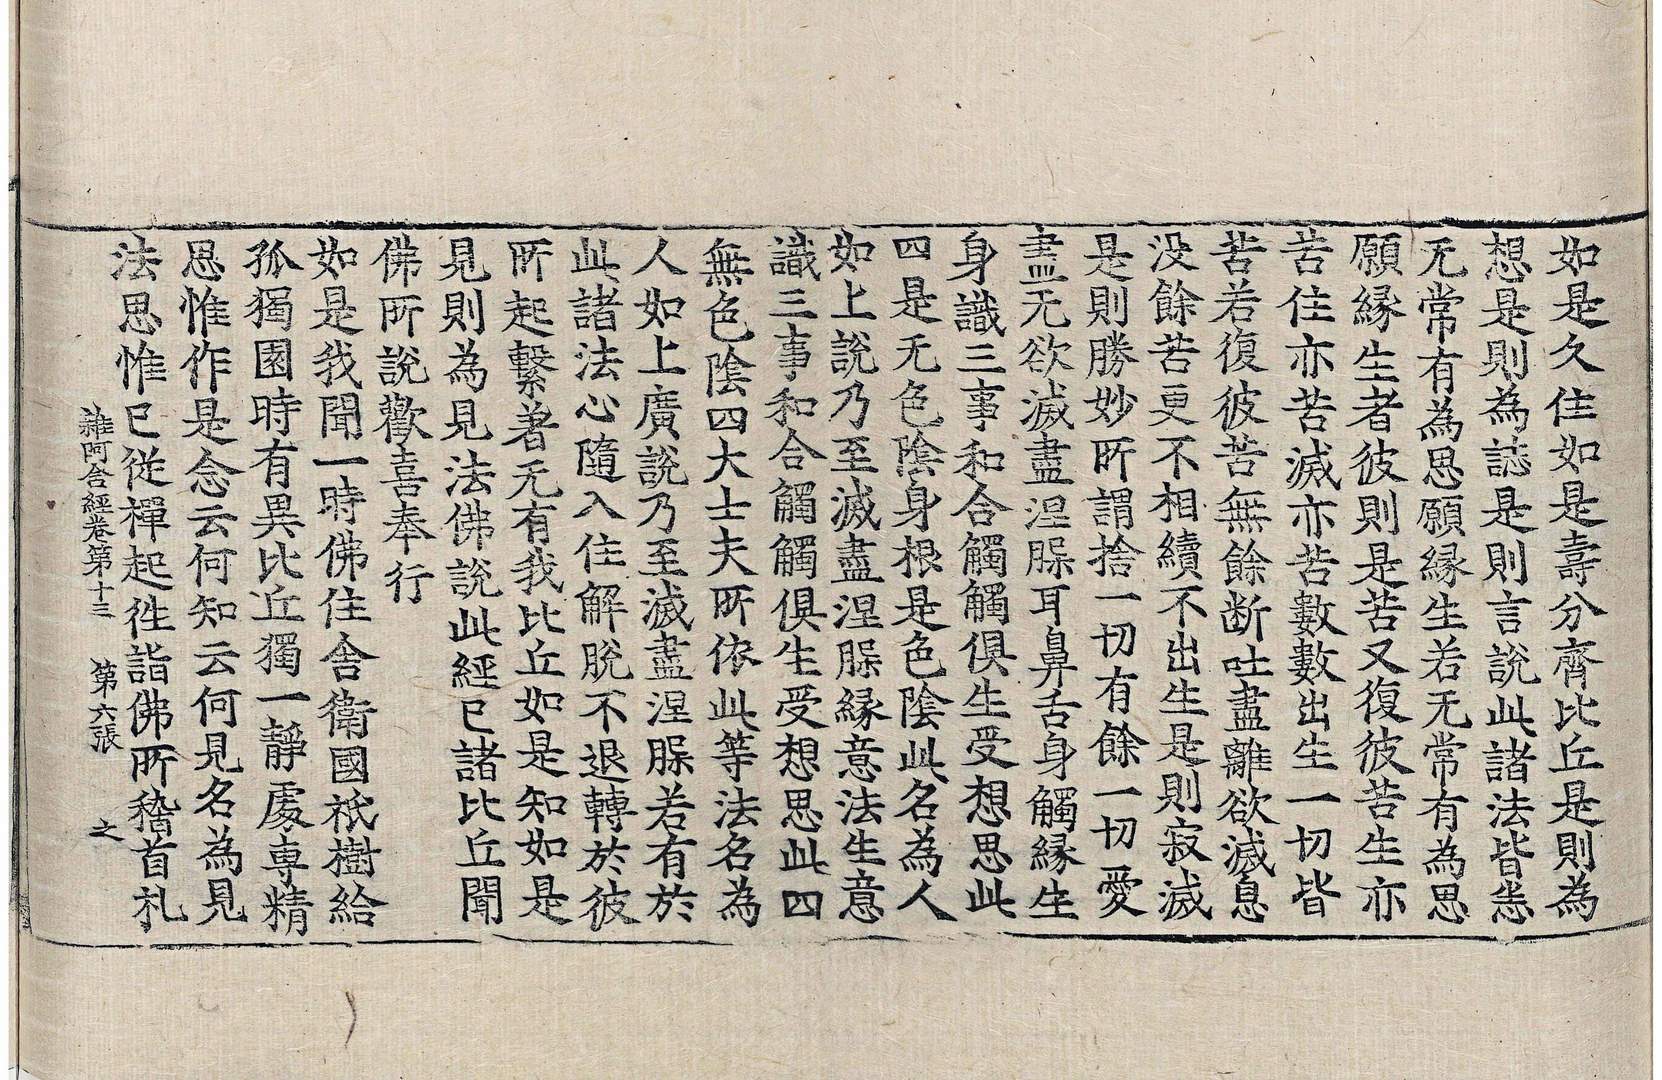 如是久住如是壽分齊比丘是則為
想是則為誌是則言說此諸法皆悉
无常有為思願緣生若无常有為思
願緣生者彼則是苦又復彼苦生亦
苦住亦苦滅亦苦數數出生一切皆
苦若復彼苦無餘断吐盡離欲滅息
没餘苦更不相續不出生是則寂滅
是則勝妙所謂捨一切有餘一切愛
盡无欲滅盡涅槃耳鼻舌身觸緣生
身識三事和合觸觸俱生受想思此
四是无色陰身根是色陰此名為人
如上說乃至滅盡涅槃緣意法生意
識三事和合觸觸俱生受想思此四
無色陰四大士夫所依此等法名為
人如上廣說乃至滅盡涅槃若有於
此諸法心隨入住解脫不退轉於彼
所起繫著无有我比丘如是知如是
見則為見法佛說此經已諸比丘聞
佛所說歡喜奉行
如是我聞一時佛住舍衛國祇樹給
孤獨園時有異比丘獨一靜處専精
思惟作是念云何知云何見名為見
雜阿含經卷第十三 第六張 之
法思惟已從禪起徃詣佛所稽首礼